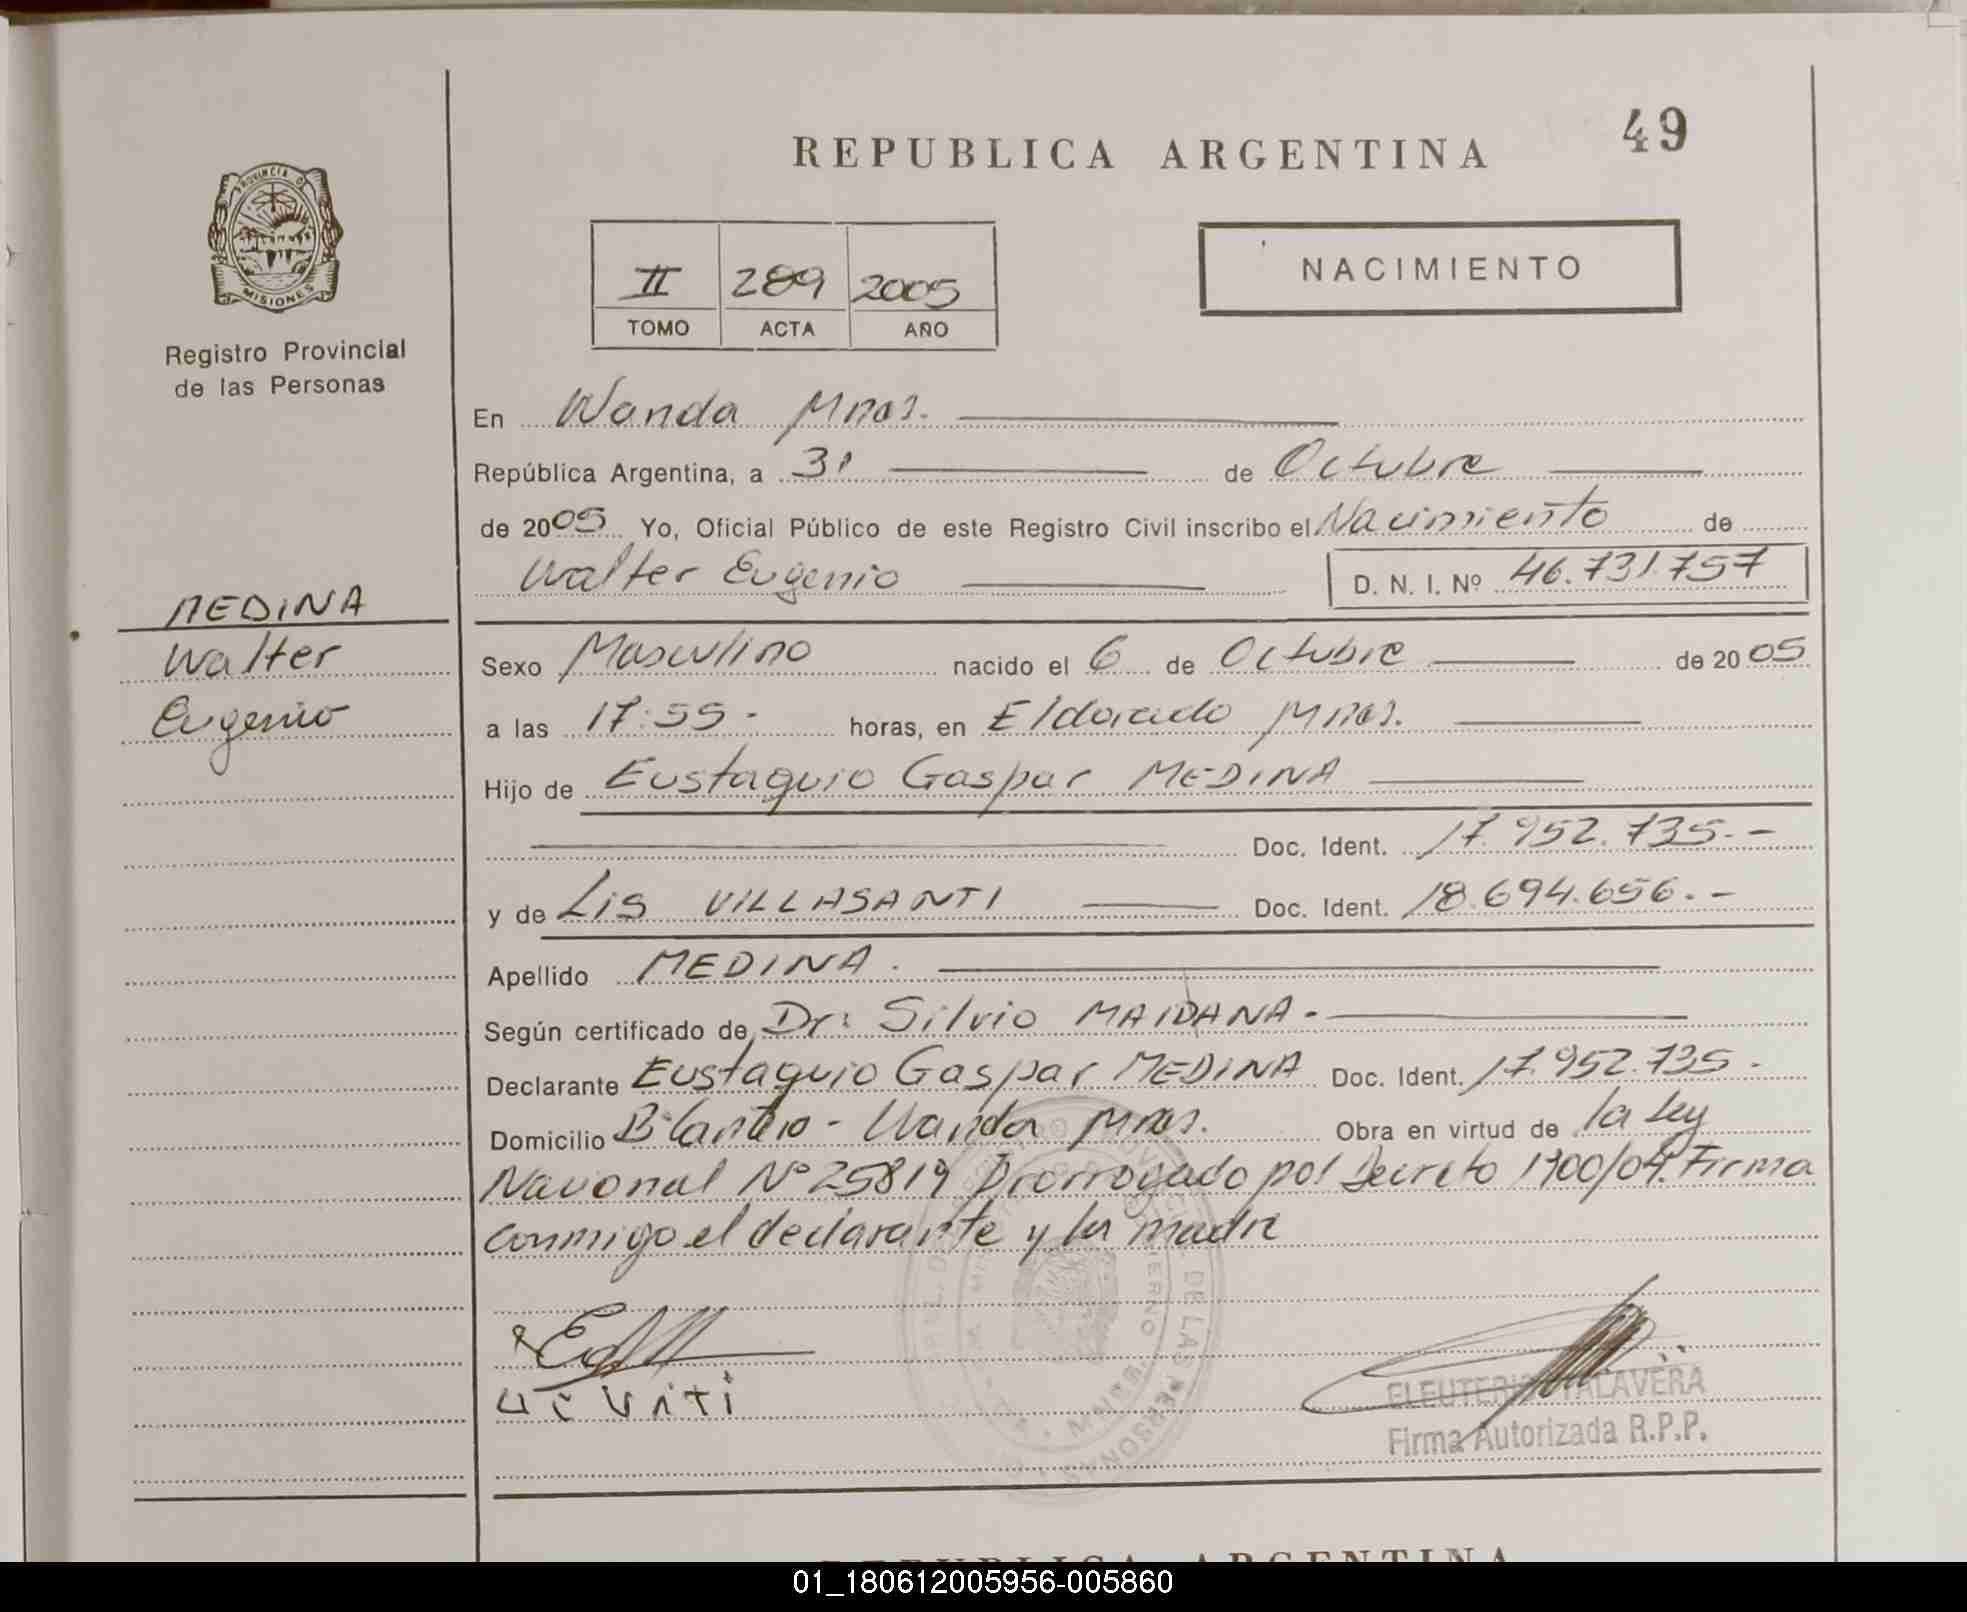 49
REPUBLICA ARGENTINA
PROVINCIA DE
MISIONES
Registro Provincial
de las Personas
II 289 2005
TOMO ACTA AÑO
NACIMIENTO
En Wanda Mnes.
República Argentina, a 31 de Octubre
de 2005 Yo, Oficial Público de este Registro Civil inscribo el Nacimiento de
Walter Eugenio D. N. I. Nº 46.731.757
MEDINA
Walter
Eugenio
Sexo Masculino nacido el 6 de Octubre de 2005
a las 17:55- horas, en Eldorado Mnes.
Hijo de Eustaquio Gaspar MEDINA
Doc. Ident. 17.952.735.-
y de Lis VILLASANTI Doc. Ident. 18.694.656.-
Apellido MEDINA.
Según certificado de Dr: Silvio MAIDANA.
Declarante Eustaquio Gaspar MEDINA Doc. Ident. 17.952.735.
Domicilio Wanda Mnes. Obra en virtud de la Ley
Nacional Nº 25819 Prorrogado por Decreto 1700/04. Firma
conmigo el declarante y la madre
ELEUTERIO TALAVERA
Firma Autorizada R.P.P.
REPUBLICA ARGENTINA
01_180612005956-005860